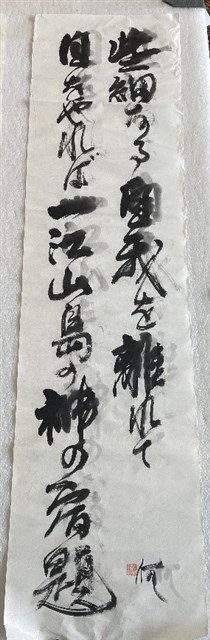 些細なる我を離れて
目をやれば一江山島の の宿題